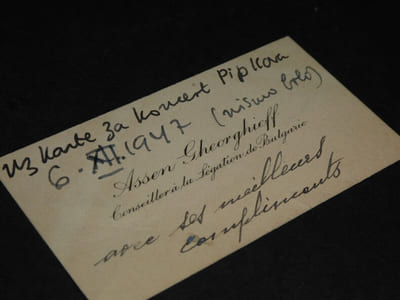 uz karte za koncert Pipkova
6. XII. 1947 (nismo bili)
Assen Gheorghieff
Conseiller à la Légation de Bulgarie
avec ses meilleures
compliments